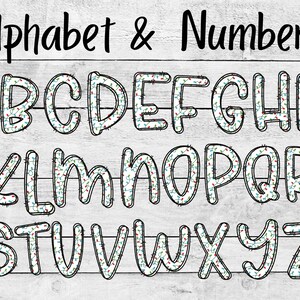 lphabet & Number
BCDEFGH
LmnOPQR
STUVWXYZ